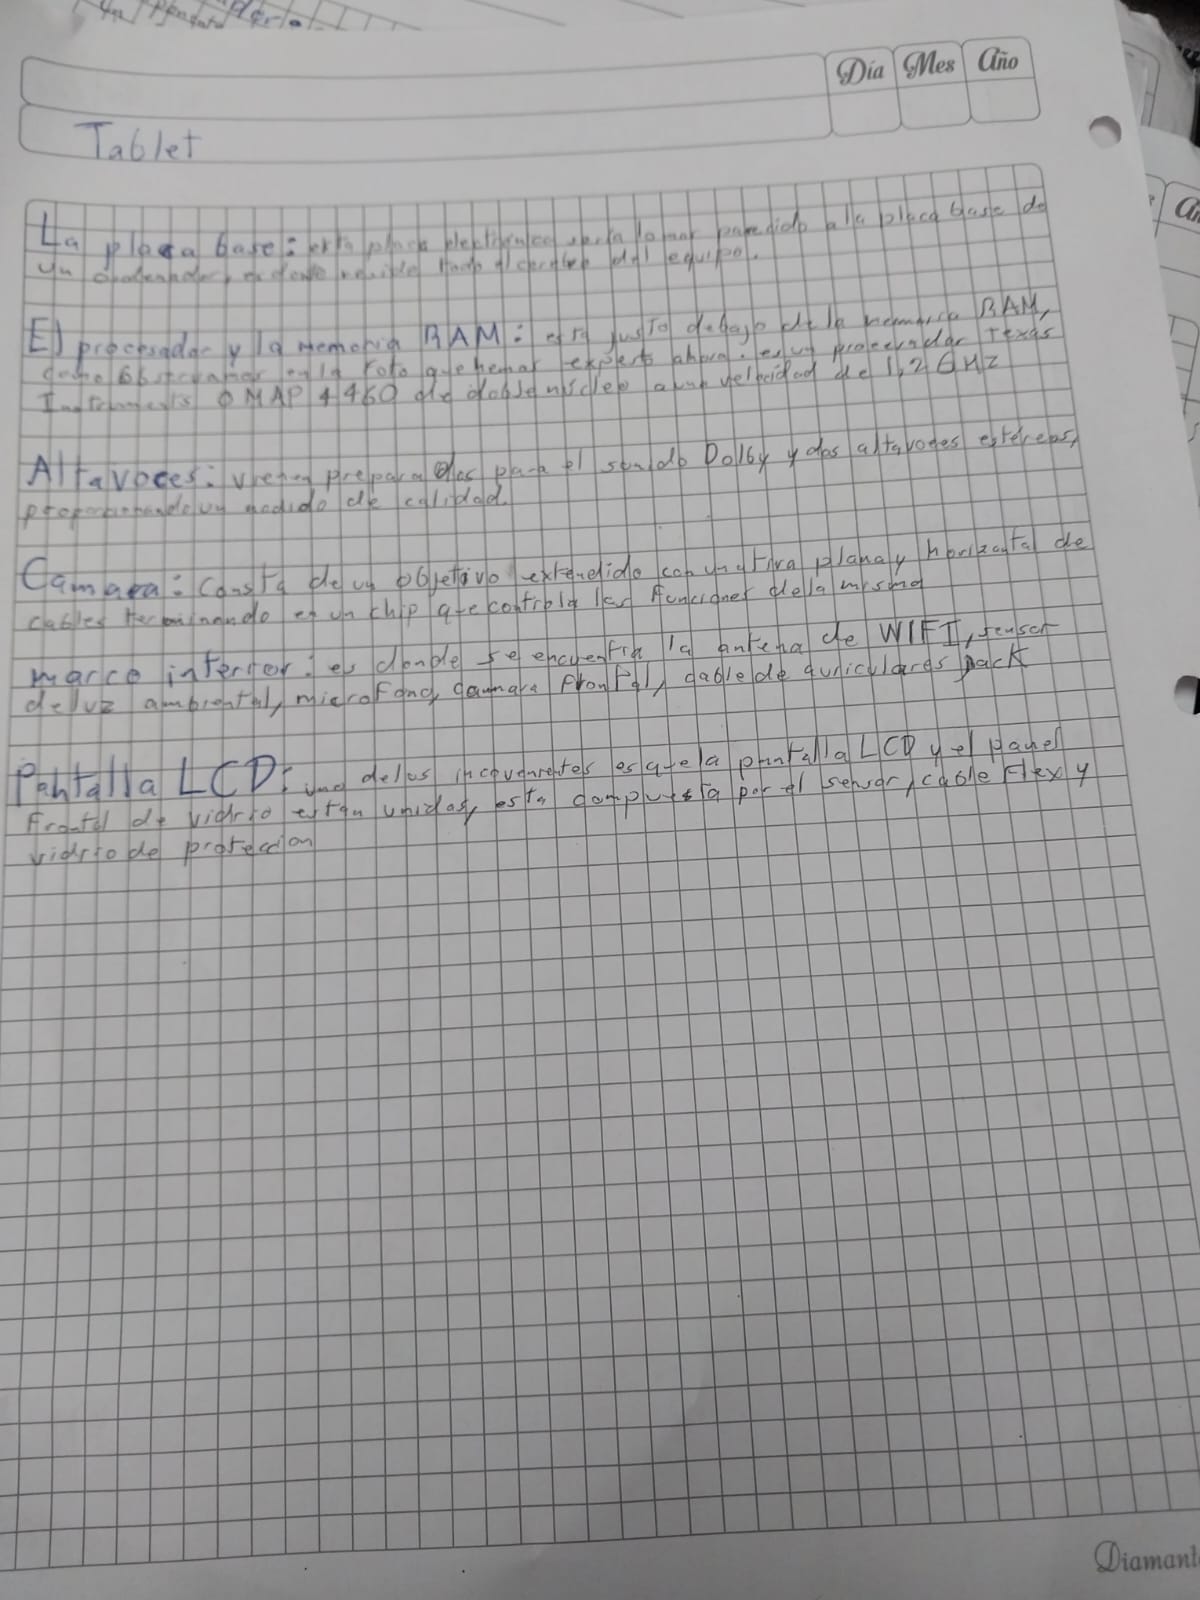 Día Mes Año
Tablet
La placa base: esta placa electronica seria lo mas parecido a la placa base de
un ordenador, es donde reside todo el cerebro del equipo.
El procesador y la memoria RAM: esta justo debajo de la memoria RAM,
como observamos en la foto que hemos expuesto ahora. es un procesador Texas
Instruments OMAP 4460 de doble nucleo a una velocidad de 1,2 GHZ
Altavoces: vienen preparados para el sonido Dolby y dos altavoces estereos,
proporcionando un sonido de calidad.
Camara: Consta de un objetivo extendido con una tira plana y horizontal de
cables terminando en un chip que controla las funciones de la misma
marco interior: es donde se encuentra la antena de WIFI, sensor
de luz ambiental, microfono, camara frontal, cable de auriculares jack
Pantalla LCD: uno de los inconvenientes es que la pantalla LCD y el panel
frontal de vidrio estan unidas, esta compuesta por el sensor, cable flex y
vidrio de proteccion
Diamante